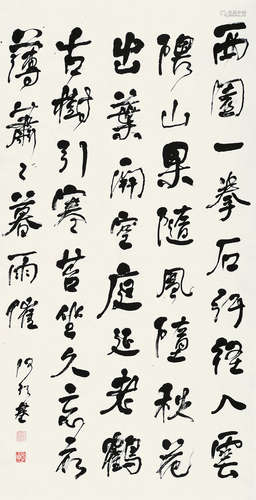 西園一拳石入雲
隈山果隨風墮秋花
出葉開空庭延老鶴
古樹引寒苔坐久忘衣
薄蕭々暮雨催
何紹基